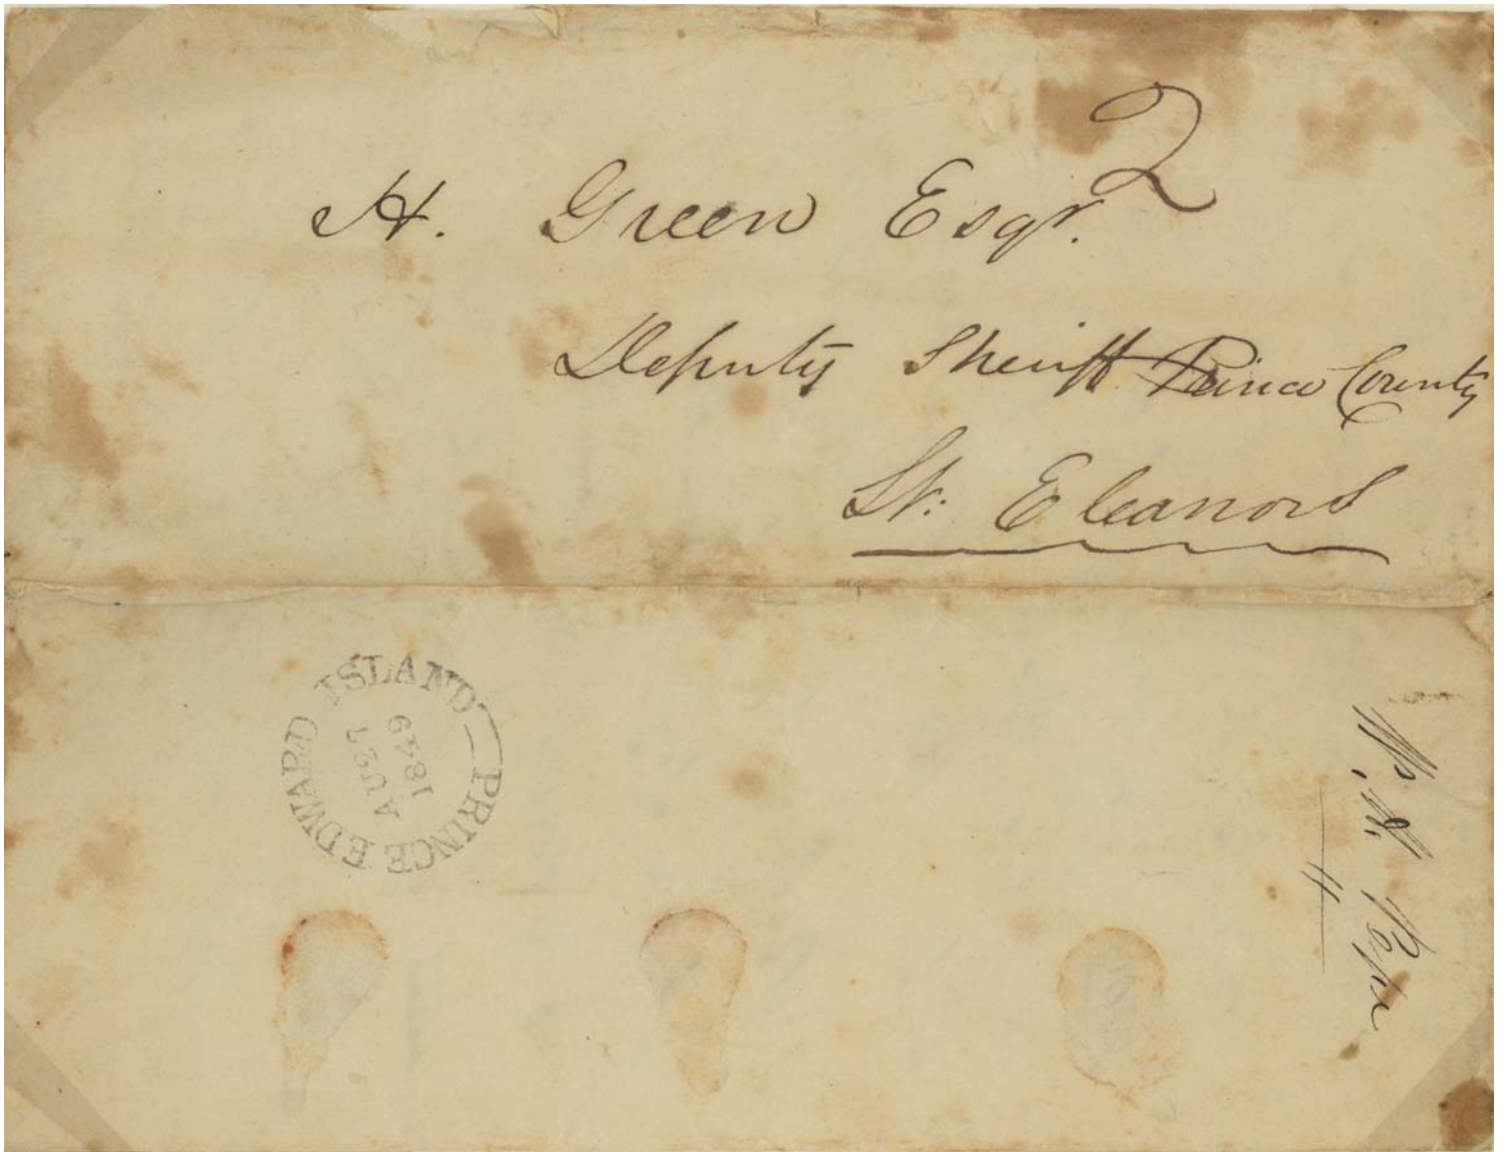 2
H. Green Esqr.
Deputy Sheriff Prince County
St. Eleanors
PRINCE EDWARD ISLAND
AU 27
1849
Pope